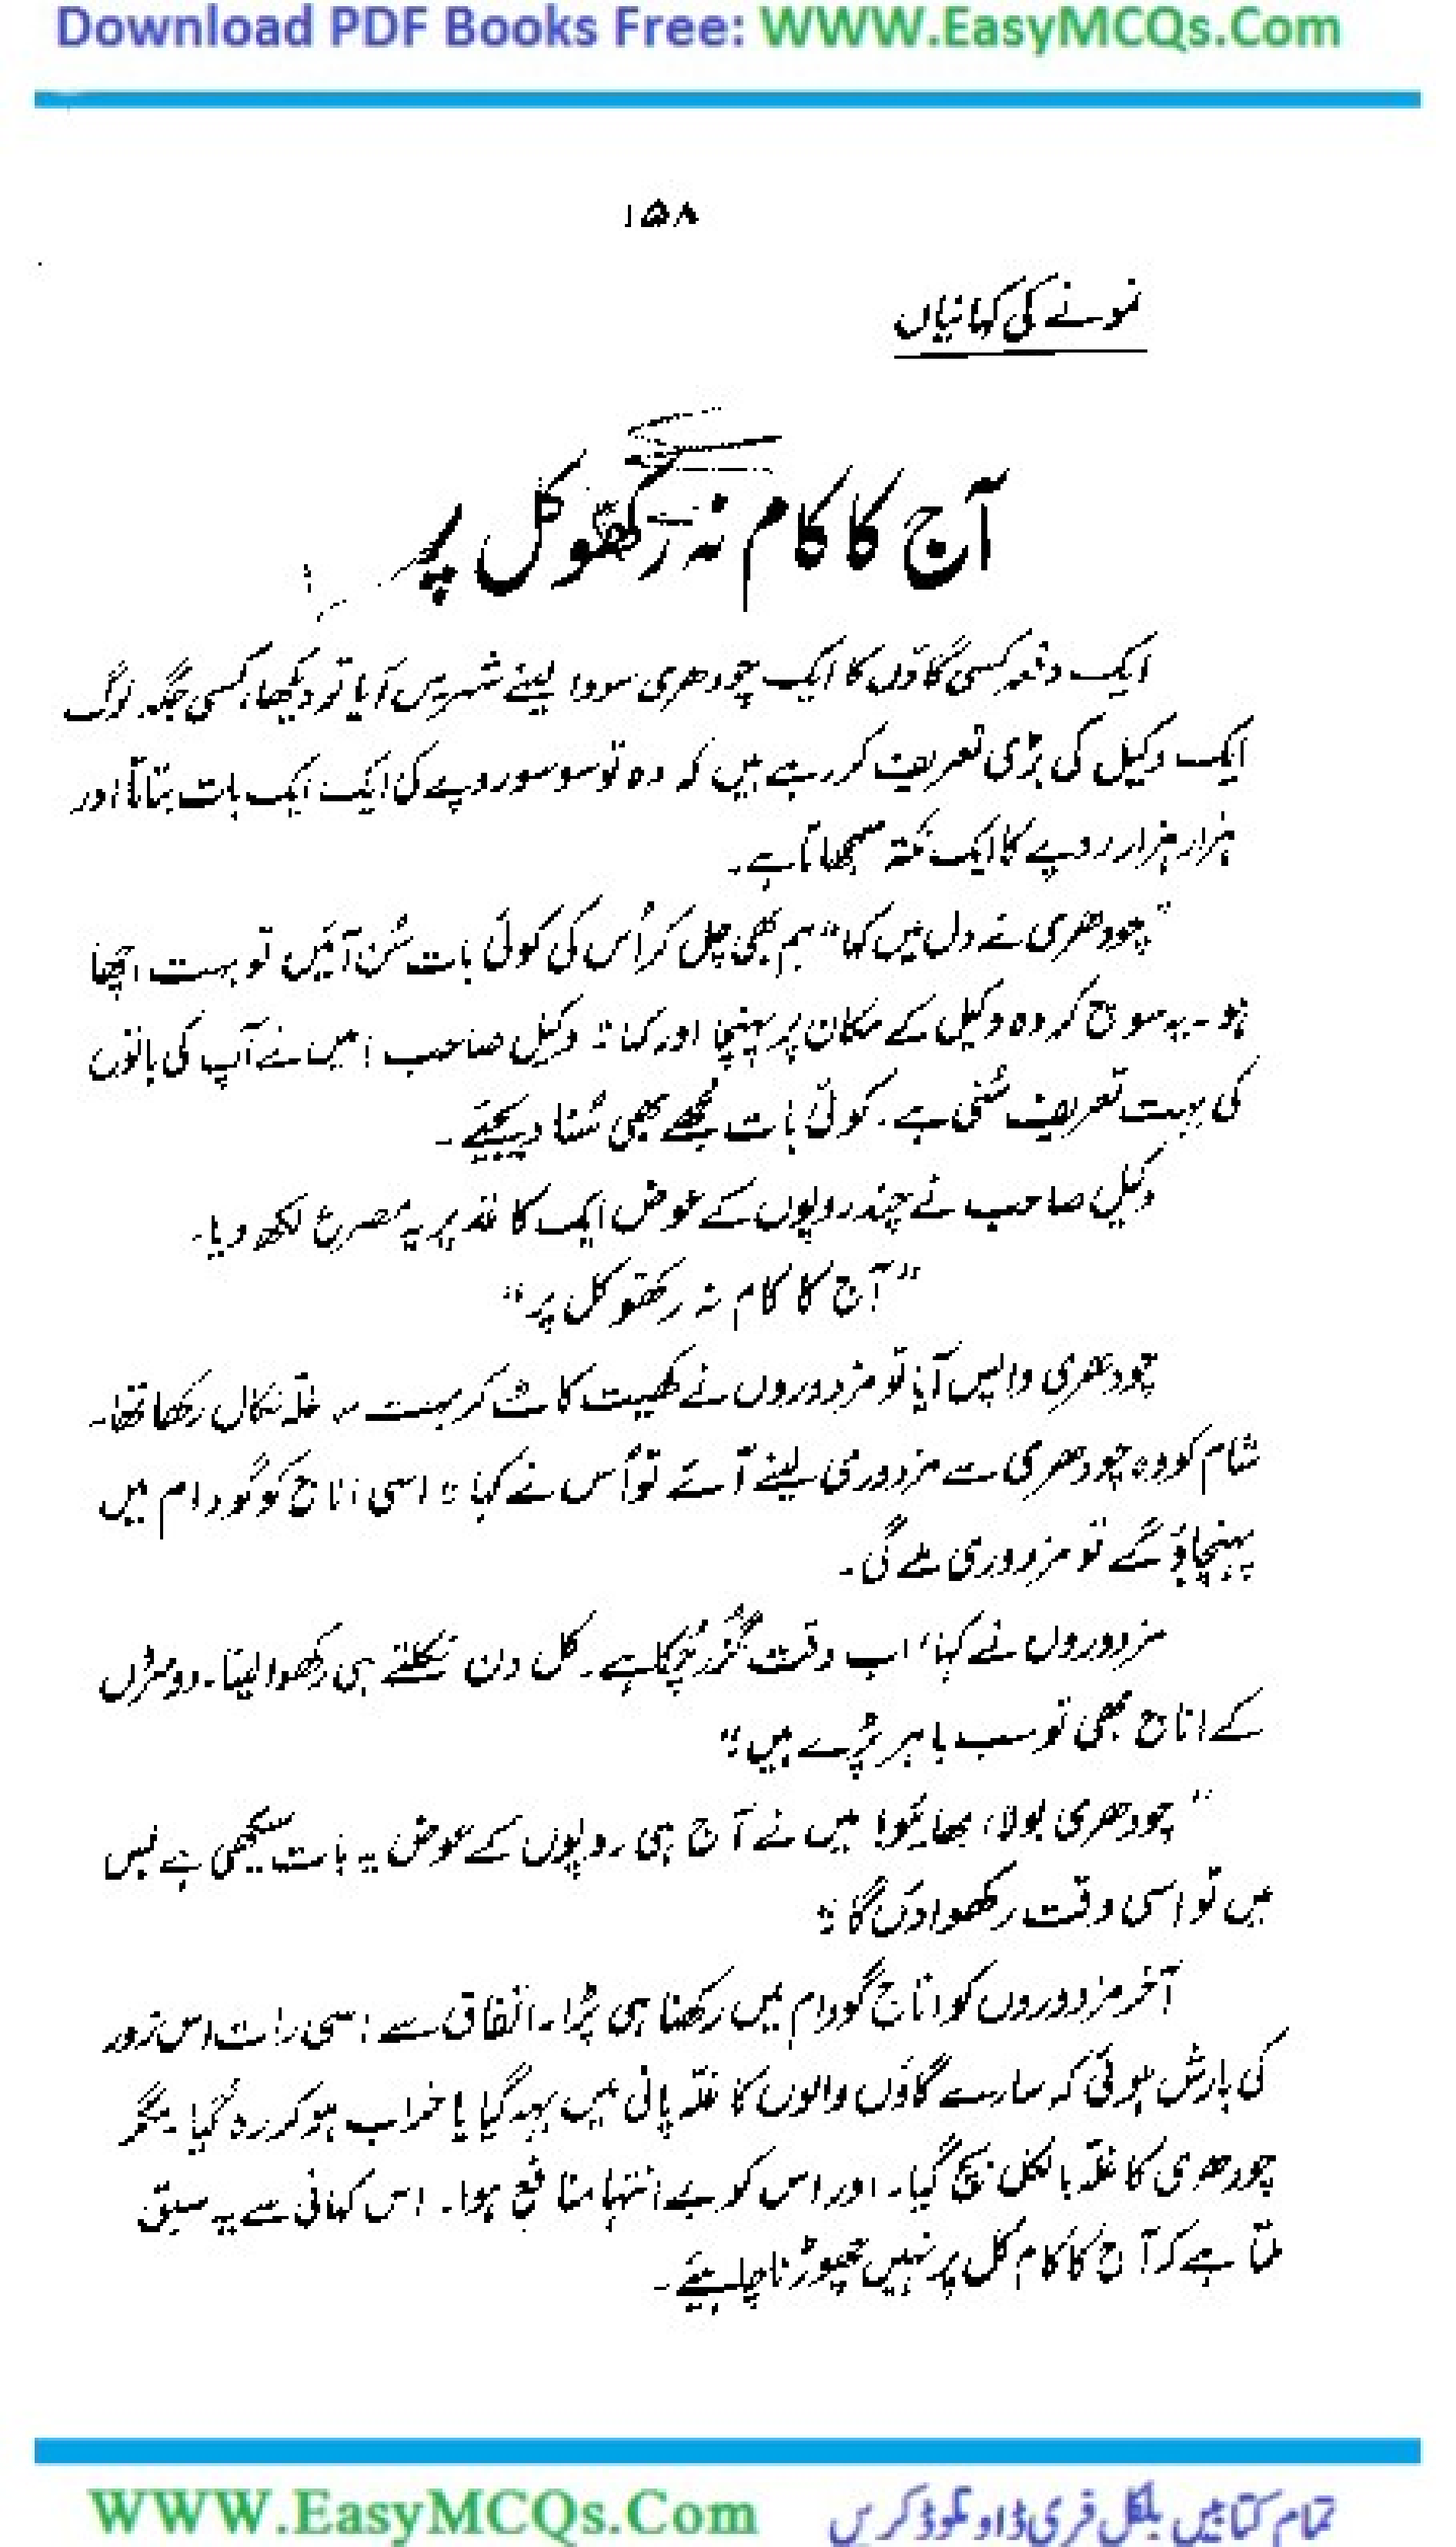 Download PDF Books Free: WWW.EasyMCQs.Com
۱۵۸
نمونے کی کہانیاں
آج کا کام نہ رکھو کل پر
ایک دفعہ کسی گاؤں کا ایک چودھری سودا لینے شہر میں آیا تو دیکھا، کسی جگہ لوگ
ایک وکیل کی بڑی تعریف کر رہے ہیں کہ وہ تو سو سو روپے کی ایک ایک بات بتاتا اور
ہزار ہزار روپے کا ایک نکتہ سمجھاتا ہے۔
"چودھری نے دل میں کہا "ہم بھی چل کر اُس کی کوئی بات سُن آئیں تو بہت اچھا
ہو۔ یہ سوچ کر وہ وکیل کے مکان پر پہنچا اور کہا: وکیل صاحب! میں نے آپ کی باتوں
کی بہت تعریف سُنی ہے۔ کوئی بات مجھے بھی سُنا دیجیئے۔
وکیل صاحب نے چند روپوں کے عوض ایک کاغذ پر یہ مصرع لکھ دیا۔
"آج کا کام نہ رکھو کل پر"
چودھری واپس آیا تو مزدوروں نے کھیت کاٹ کر بہت سا غلّہ نکال رکھا تھا۔
شام کو وہ چودھری سے مزدوری لینے آئے تو اُس نے کہا: اسی اناج کو گودام میں
پہنچاؤ گے تو مزدوری ملے گی۔
مزدوروں نے کہا، اب وقت گزر چُکا ہے۔ کل دن نکلتے ہی رکھوا لینا۔ دوسروں
کے اناج بھی تو سب باہر پڑے ہیں"
"چودھری بولا، بھائیو! میں نے آج ہی روپوں کے عوض یہ بات سیکھی ہے بس
میں تو اسی وقت رکھواؤں گا"
آخر مزدوروں کو اناج گودام میں رکھنا ہی پڑا۔ اتفاق سے اسی رات اس زور
کی بارش ہوئی کہ سارے گاؤں والوں کا غلّہ پانی میں بہہ گیا یا خراب ہو کر رہ گیا۔ مگر
چودھری کا غلّہ بالکل بچ گیا۔ اور اس کو بے انتہا منافع ہوا۔ اس کہانی سے یہ سبق
ملتا ہے کہ آج کا کام کل پر نہیں چھوڑنا چاہیئے۔
WWW.EasyMCQs.Com تمام کتابیں بلکل فری ڈاونلوڈ کریں